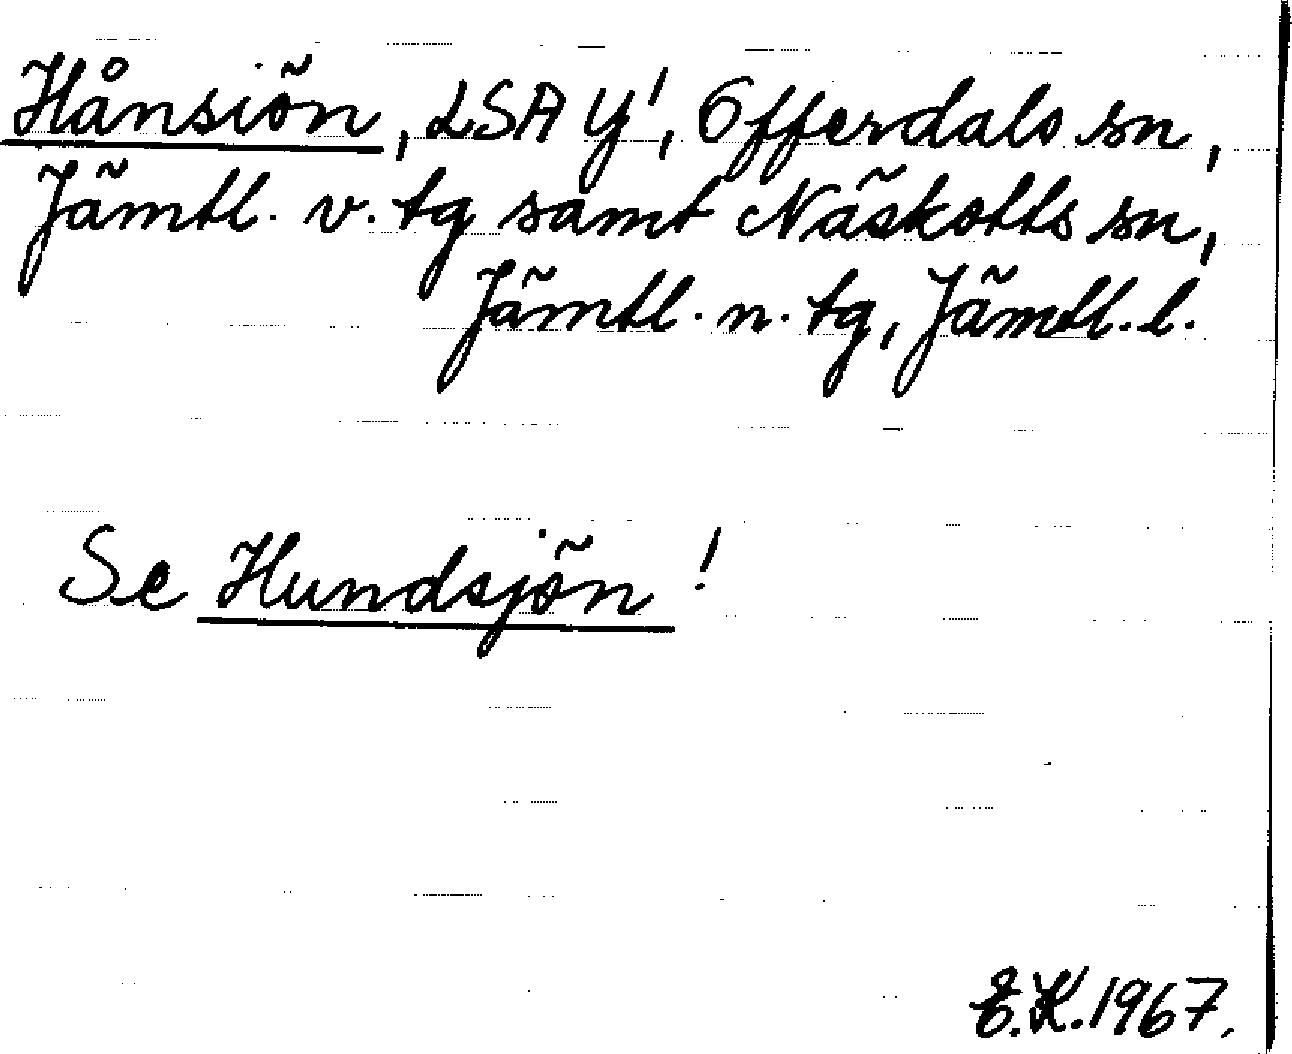 Hånsiön, LSA Y¹, Offerdals sn,
Jämtl. v. tg samt Näskotts sn,
Jämtl. n. tg, Jämtl. l.
Se Hundsjön!
E.K. 1967.